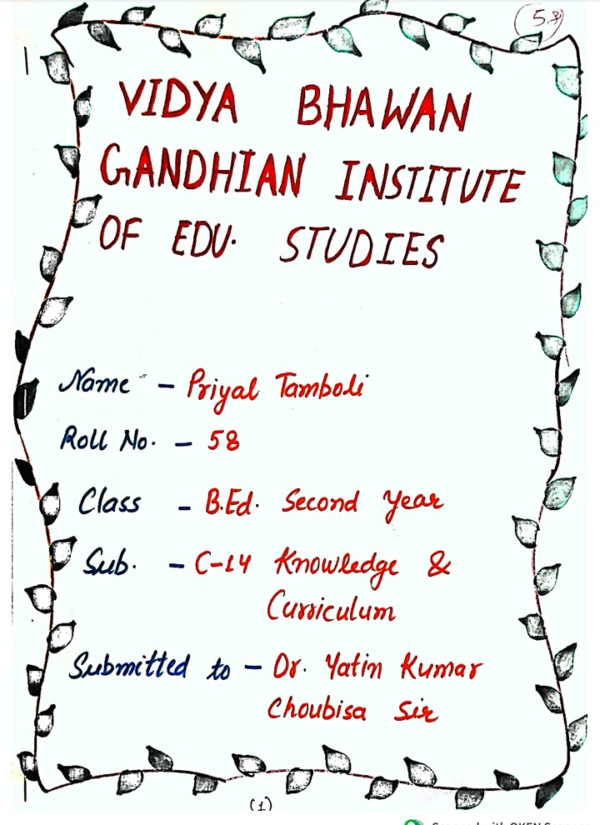 58
VIDYA BHAWAN
GANDHIAN INSTITUTE
OF EDU. STUDIES
Name - Priyal Tamboli
Roll No. - 58
Class - B.Ed. Second Year
Sub. - C-14 Knowledge &
Curriculum
Submitted to - Dr. Yatin Kumar
Choubisa Sir
(1)